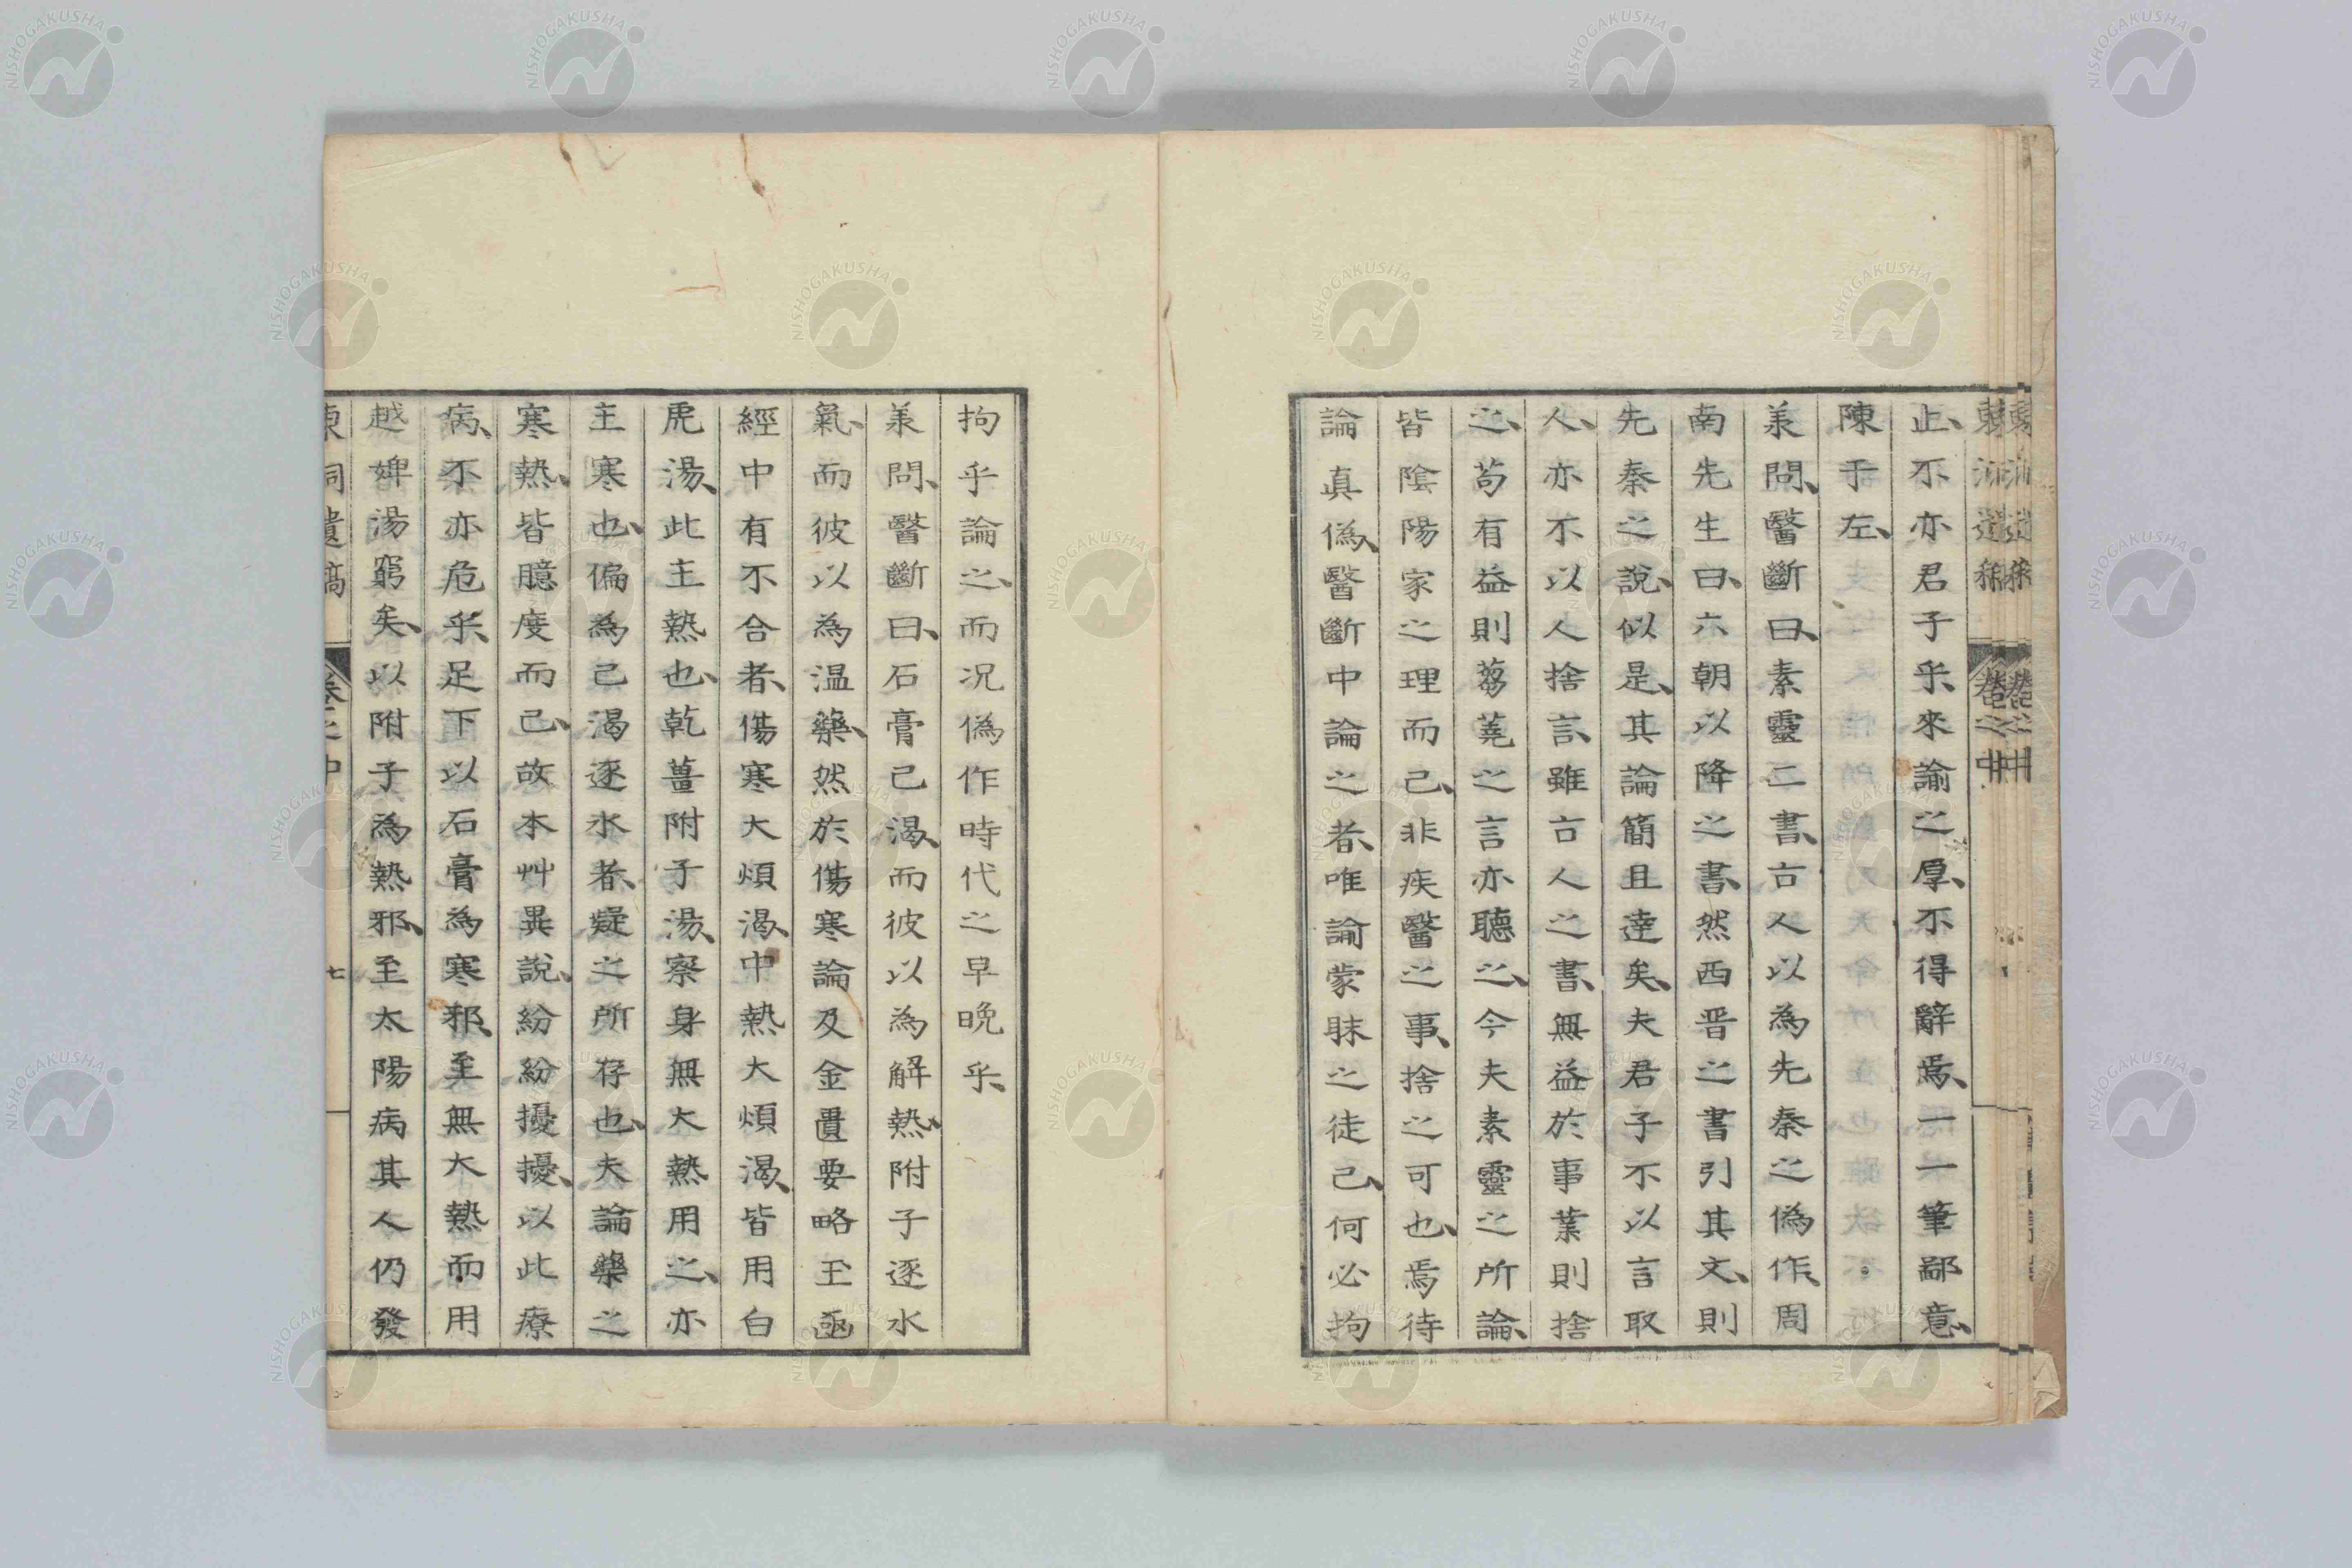 止、不亦君子乎、來諭之厚、不得辭焉、一一筆鄙意、
陳于左、
羕問、醫斷曰、素靈二書、古人以為先秦之偽作、周
南先生曰、六朝以降之書、然西晋之書引其文、則
先秦之說、似是、其論簡且達矣、夫君子不以言取
人、亦不以人捨言、雖古人之書、無益於事業則捨
之、苟有益則蒭蕘之言亦聽之、今夫素靈之所論、
皆陰陽家之理而已、非疾醫之事、捨之可也、焉待
論真偽、醫斷中論之者、唯論蒙昧之徒已、何必拘
拘乎論之、而况偽作時代之早晚乎、
羕問、醫斷曰、石膏已渴、而彼以為解熱、附子逐水
氣、而彼以為温藥、然於傷寒論及金匱要略玉函
經中有不合者、傷寒大煩渴、中熱大煩渴、皆用白
虎湯、此主熱也、乾薑附子湯、察身無大熱用之、亦
主寒也、偏為已渴逐水者、疑之所存也、夫論藥之
寒熱、皆臆度而已、故本艸異說、紛紛擾擾、以此療
病、不亦危乎、足下以石膏為寒邪、至無大熱而用
越婢湯窮矣、以附子為熱邪、至太陽病其人仍發
東洞遺稿 卷之中 七
NISHOGAKUSHA